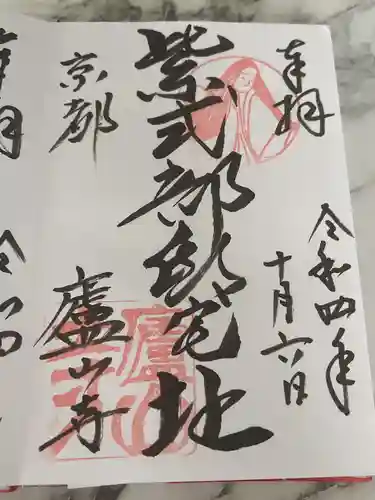 奉拝
令和四年
十月六日
紫式部邸宅址
京都
廬山寺